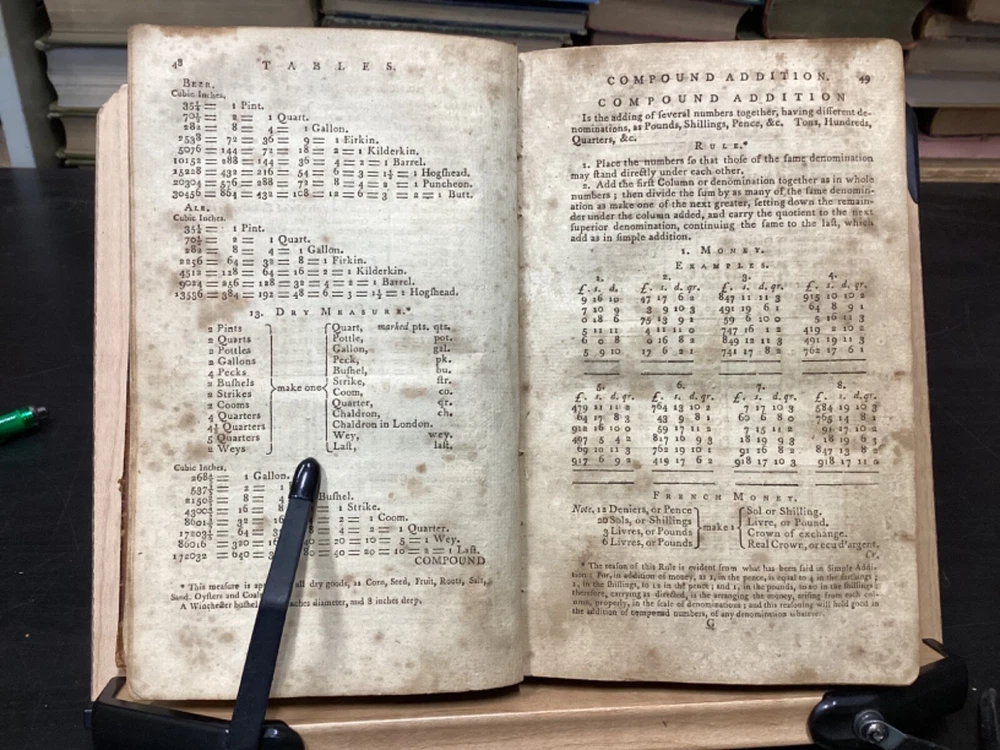 48 TABLES.
BEER.
Cubic Inches,
35¼ = 1 Pint.
70½ = 2 = 1 Quart.
282 = 8 = 4 = 1 Gallon.
2538 = 72 = 36 = 9 = 1 Firkin.
5076 = 144 = 72 = 18 = 2 = 1 Kilderkin.
10152 = 288 = 144 = 36 = 4 = 2 = 1 Barrel.
15228 = 432 = 216 = 54 = 6 = 3 = 1½ = 1 Hogſhead.
20304 = 576 = 288 = 72 = 8 = 4 = 2 = 1 Puncheon.
30456 = 864 = 432 = 108 = 12 = 6 = 3 = 2 = 1 Butt.
ALE.
Cubic Inches,
35¼ = 1 Pint.
70½ = 2 = 1 Quart.
282 = 8 = 4 = 1 Gallon.
2256 = 64 = 32 = 8 = 1 Firkin.
4512 = 128 = 64 = 16 = 2 = 1 Kilderkin.
9024 = 256 = 128 = 32 = 4 = 2 = 1 Barrel.
13536 = 384 = 192 = 48 = 6 = 3 = 1½ = 1 Hogſhead.
13. DRY MEASURE.*
2 Pints Quart, marked pts. qts.
2 Quarts Pottle, pot.
2 Pottles Gallon, gal.
2 Gallons Peck, pk.
4 Pecks Buſhel, bu.
2 Buſhels Strike, ſtr.
2 Strikes make one Coom, co.
2 Cooms Quarter, qr.
4 Quarters Chaldron, ch.
4½ Quarters Chaldron in London.
5 Quarters Wey, wey.
2 Weys Laſt, laſt.
Cubic Inches,
268⅘ = 1 Gallon.
537⅗ = 2 = 1
2150⅖ = 8 = 4 Buſhel.
4300⅘ = 16 = 8 1 Strike.
8601⅗ = 32 = 16 = 2 = 1 Coom.
17203⅕ = 64 = 3 = 4 = 2 = 1 Quarter.
86016 = 320 = 16 40 = 20 = 10 = 5 = 1 Wey.
172032 = 640 = 3 80 = 40 = 20 = 10 = 2 = 1 Laſt.
COMPOUND
* This meaſure is all dry goods, as Corn, Seed, Fruit, Roots, Salt,
Sand, Oyſters and Coals
A Wincheſter buſhel inches diameter, and 8 inches deep.
COMPOUND ADDITION. 49
COMPOUND ADDITION
Is the adding of ſeveral numbers together, having different de-
nominations, as Pounds, Shillings, Pence, &c. Tons, Hundreds,
Quarters, &c.
RULE.*
1. Place the numbers ſo that thoſe of the ſame denomination
may ſtand directly under each other.
2. Add the firſt Column or denomination together as in whole
numbers; then divide the ſum by as many of the ſame denomin-
ation as make one of the next greater, ſetting down the remain-
der under the column added, and carry the quotient to the next
ſuperior denomination, continuing the ſame to the laſt, which
add as in ſimple addition.
1. MONEY.
EXAMPLES.
1. 2. 3. 4.
£. s. d. £. s. d. qr. £. s. d. qr. £. s. d. qr.
9 16 10 47 17 6 2 847 11 11 3 915 10 10 2
7 10 9 3 9 10 3 491 19 6 1 64 8 9 1
0 18 6 75 13 9 2 59 6 10 0 5 16 11 3
5 11 11 4 11 11 0 747 16 1 2 419 2 10 2
6 0 8 0 16 8 2 849 12 11 3 491 19 11 3
5 9 10 17 6 2 1 741 17 8 2 762 17 6 1
5. 6. 7. 8.
£. s. d. qr. £. s. d. qr. £. s. d. qr. £. s. d. qr.
479 11 11 2 764 13 10 2 7 17 10 3 584 19 10 3
64 17 8 3 43 9 8 1 60 6 8 0 765 14 8 1
912 16 10 0 59 17 11 2 7 15 11 2 91 17 10 2
497 5 4 2 817 16 9 3 18 19 9 3 18 19 6 3
69 10 11 3 762 19 10 1 91 16 8 2 847 13 8 2
917 6 9 2 419 17 6 2 918 17 10 3 918 17 11 0
FRENCH MONEY.
Note, 12 Deniers, or Pence Sol or Shilling.
20 Sols, or Shillings make 1 Livre, or Pound.
3 Livres, or Pounds Crown of exchange.
6 Livres, or Pounds Real Crown, or ecu d'argent.
Cr.
* The reaſon of this Rule is evident from what has been ſaid in Simple Addi-
tion: For, in addition of money, as 1, in the pence, is equal to 4 in the farthings;
1, in the ſhillings, to 12 in the pence; and 1, in the pounds, to 20 in the ſhillings;
therefore, carrying as directed, is the arranging the money, ariſing from each col-
umn, properly, in the ſcale of denominations; and this reaſoning will hold good in
the addition of compound numbers, of any denomination whatever.
G